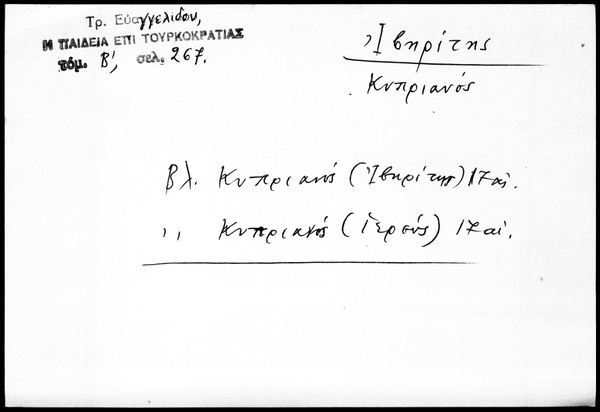 Τρ. Εὐαγγελίδου,
Η ΠΑΙΔΕΙΑ ΕΠΙ ΤΟΥΡΚΟΚΡΑΤΙΑΣ
τόμ. Β', σελ. 267.
Ἰβηρίτης
Κυπριανός
Βλ. Κυπριανός (Ἰβηρίτης) 17 αἰ.
,, Κυπριανός (Ἱερεύς) 17 αἰ.